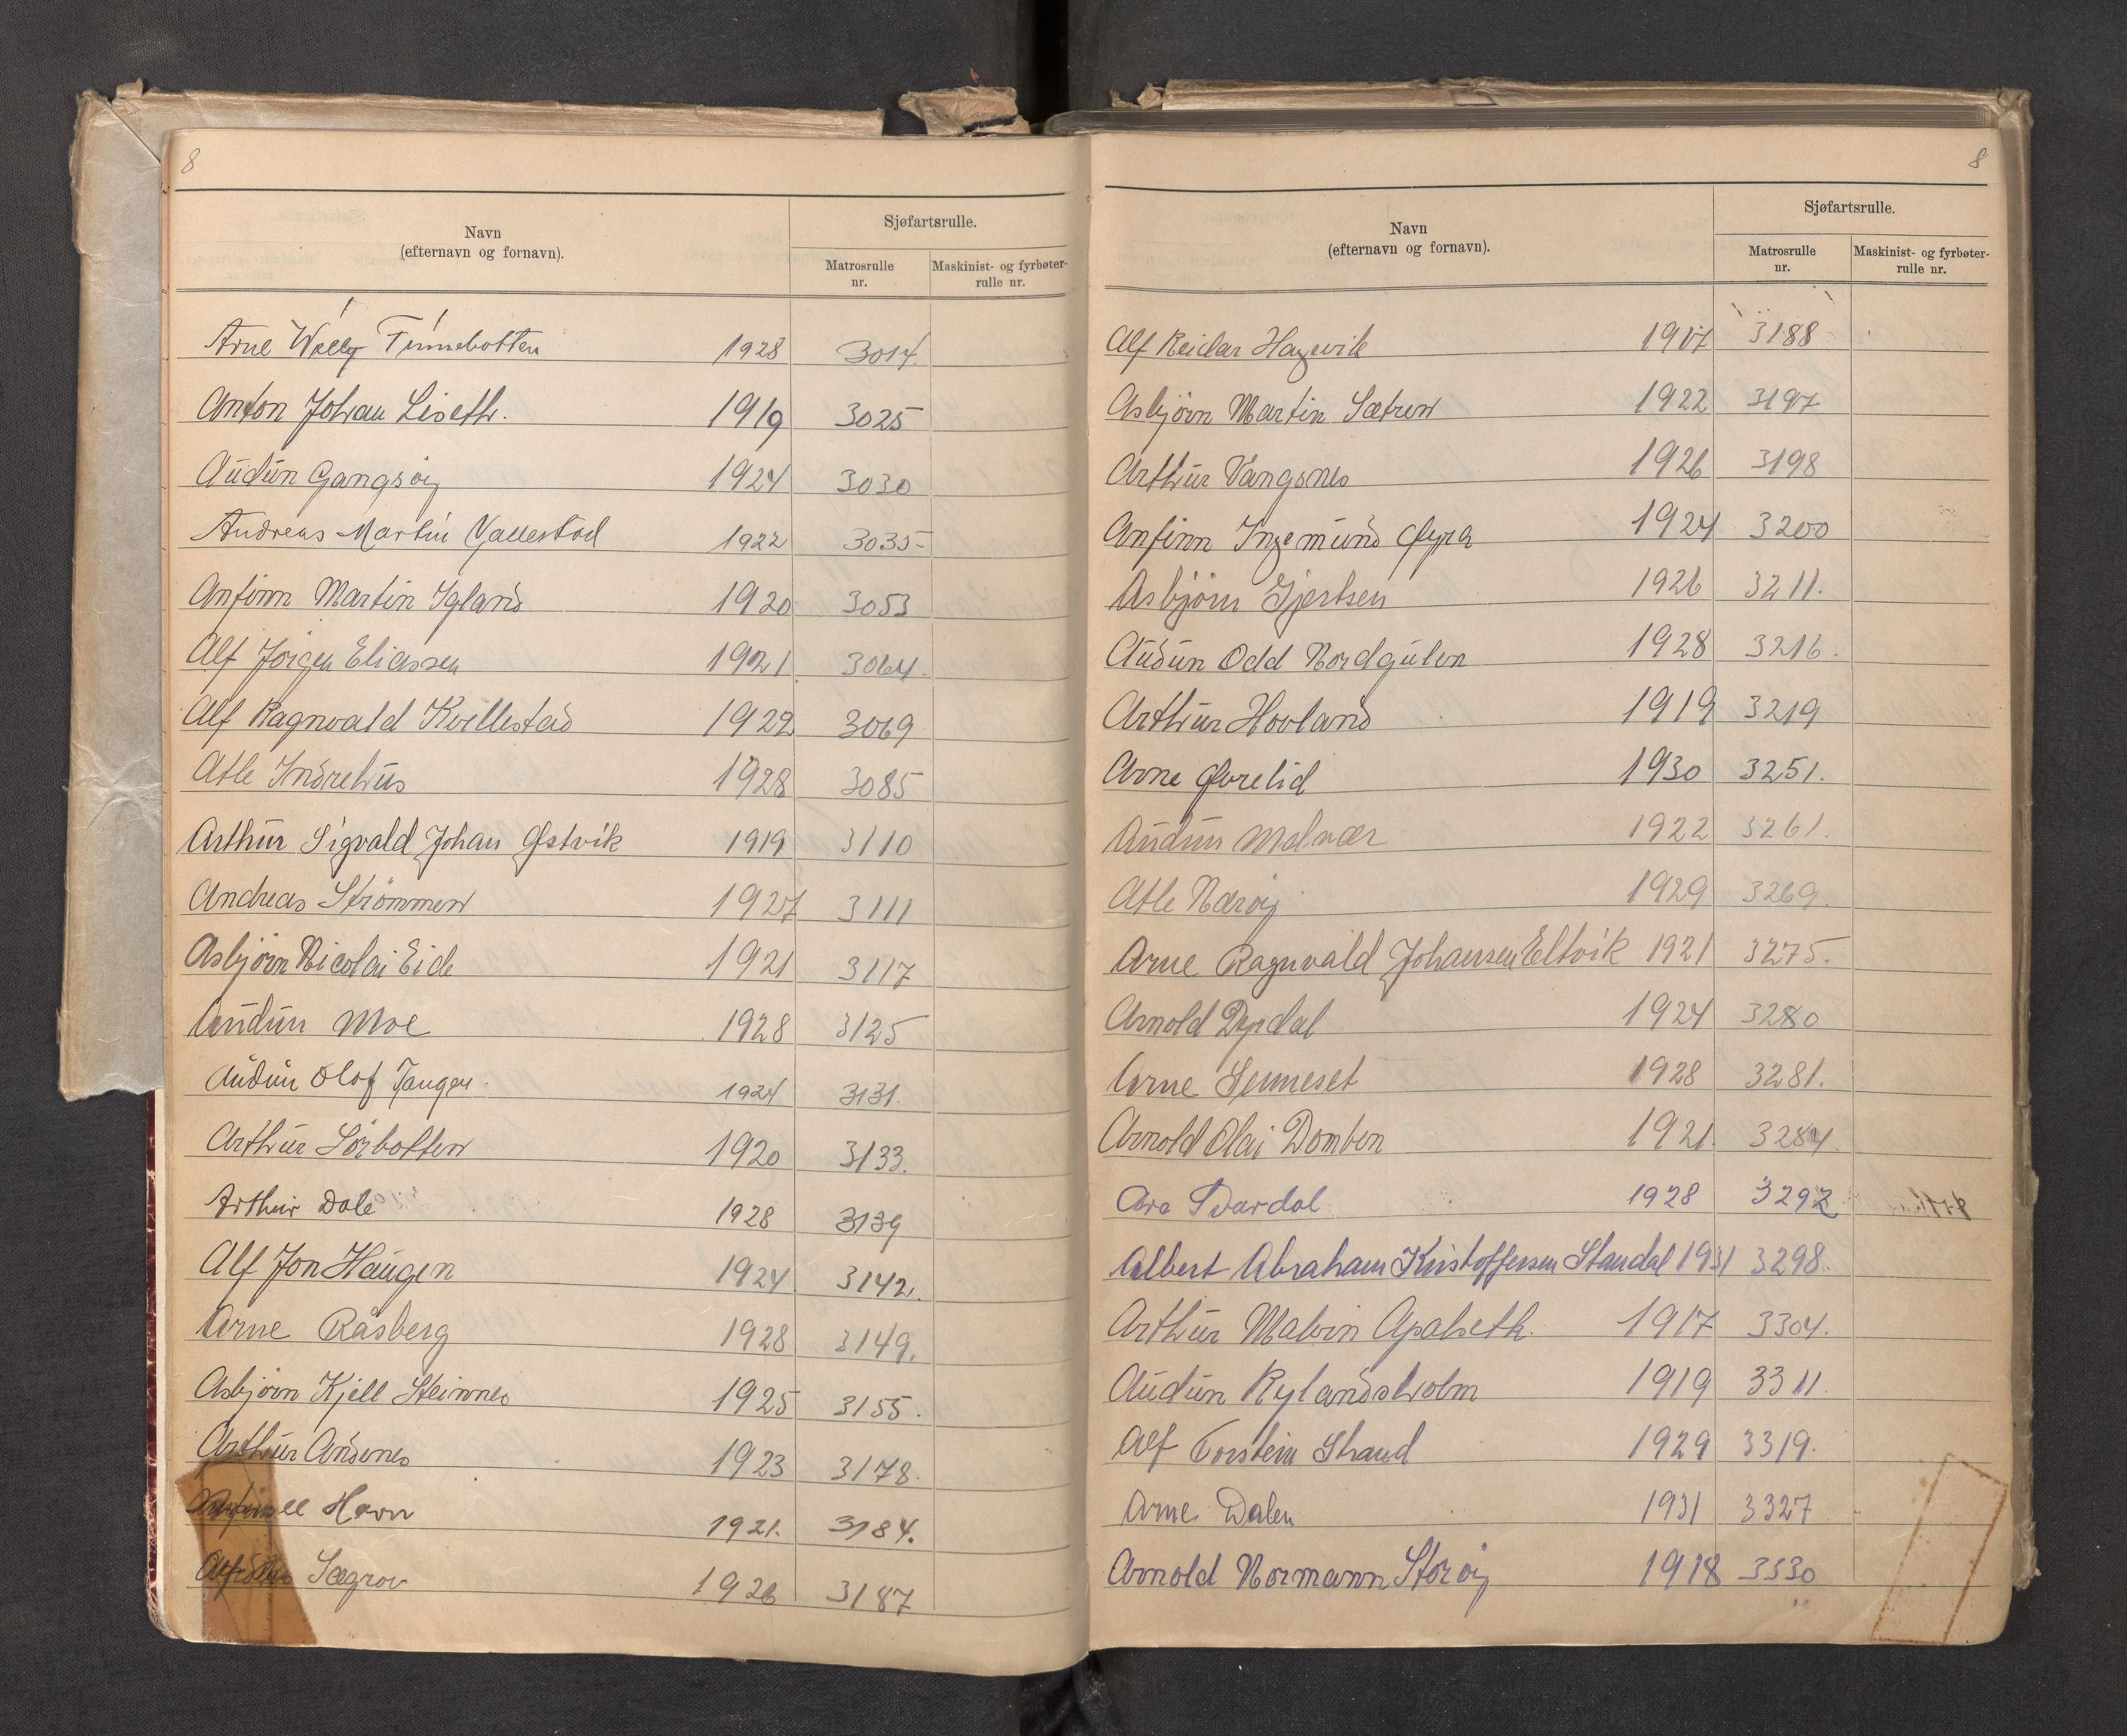 8
Navn
(efternavn og fornavn).
Sjøfartsrulle.
Matrosrulle
nr.
Maskinist- og fyrbøter-
rulle nr.
Arne Willy Timmebotten 1928 3014.
Anton Johan Liseth. 1919 3025
Audun Gangsöy 1924 3030
Andreas Martin Vallestad 1922 3035
Anfinn Martin Igland 1920 3053
Alf Jörgen Eliassen 1921 3064.
Alf Ragnvald Kvillestad 1922 3069
Atle Indrehus 1928 3085
Arthur Sigvald Johan Østvik 1919 3110
Andreas Strömmen 1927 3111
Asbjörn Nicolai Eide 1921 3117
Audun Moe 1928 3125
Audun Olaf Tangen 1924 3131.
Arthur Sörbotten 1920 3133.
Arthur Dale 1928 3139
Alf Jon Haugen 1924 3142.
Arne Råsberg 1928 3149.
Asbjörn Kjell Steinnes 1925 3155.
Arthur Andenes 1923 3178.
Havn 1921. 3184.
Sægrov 1926 3187
8
Navn
(efternavn og fornavn).
Sjøfartsrulle.
Matrosrulle
nr.
Maskinist- og fyrbøter-
rulle nr.
Alf Reidar Hagevik 1917 3188
Asbjörn Martin Sætren 1922 3197
Arthur Vangsnes 1926 3198
Anfinn Ingemund Øyra 1924 3200
Asbjörn Gjertsen 1926 3211.
Audun Odd Nordgulen 1928 3216.
Arthur Hovland 1919 3219
Arne Øvrelid 1930 3251.
Audun Melvær 1922 3261.
Atle Næröy 1929 3269.
Arne Ragnvald Johansen Eltvik 1921 3275.
Arnold Dyrdal 1924 3280
Arne Senneset 1928 3281.
Arnold Olai Domben 1921. 3284.
Are Svardal 1928 3292
Albert Abraham Kristoffersen Standal 1931 3298.
Arthur Malvin Apalseth. 1917 3304.
Audun Rylandsholm 1919 3311.
Alf Torstein Strand 1929 3319.
Arne Dalen 1931 3327
Arnold Normann Storöy 1918 3330